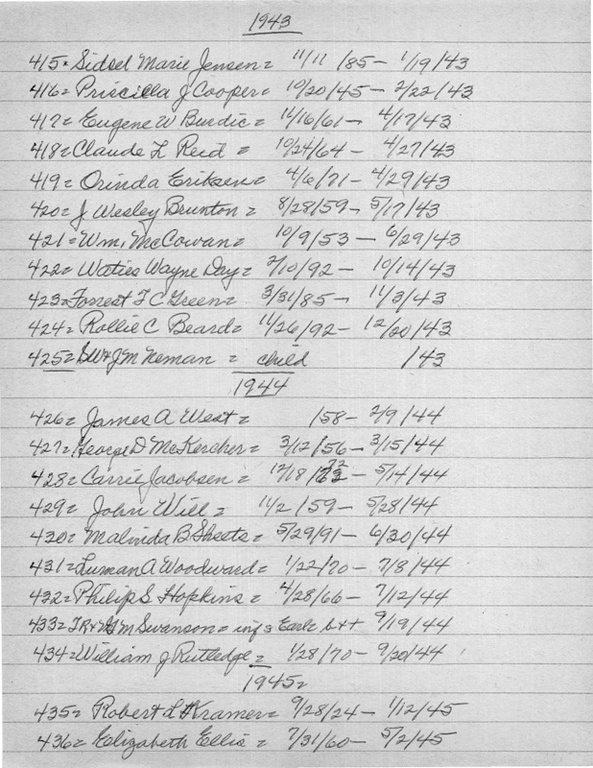 1943
415= Sidsel Marie Jensen = 11/11/85 - 1/19/43
416= Priscilla J Cooper = 10/20/45 - 2/22/43
417= Eugene W Burdic = 11/16/61 - 4/17/43
418= Claude L Reid = 10/24/64 - 4/27/43
419= Orinda Eriksen = 4/6/71 - 4/29/43
420= J Wesley Brunton = 8/28/59 - 5/17/43
421= Wm. McCowan = 10/9/53 - 6/29/43
422= Waties Wayne Day = 2/10/92 - 10/14/43
423= Forrest F C Green = 3/31/85 - 11/3/43
424= Rollie C Beard = 11/26/92 - 12/20/43
425= & J M Neman = child /43
1944
426= James A West = /58 - 2/9/44
427= George D McKercher = 3/12/56 - 3/15/44
428= Carrie Jacobsen = 12/18/72 - 5/14/44
429= John Will = 11/2/59 - 5/28/44
430= Malinda B Sheets = 5/29/91 - 6/30/44
431= Luman A Woodward = 1/22/70 - 7/8/44
432= Philip S Hopkins = 4/28/66 - 7/12/44
433= M Swanson = inf s Earl b++ 9/19/44
434= William J Rutledge = 1/28/70 - 9/20/44
1945=
435= Robert L Kramer = 9/28/24 - 1/12/45
436= Elizabeth Ellis = 7/31/60 - 5/2/45